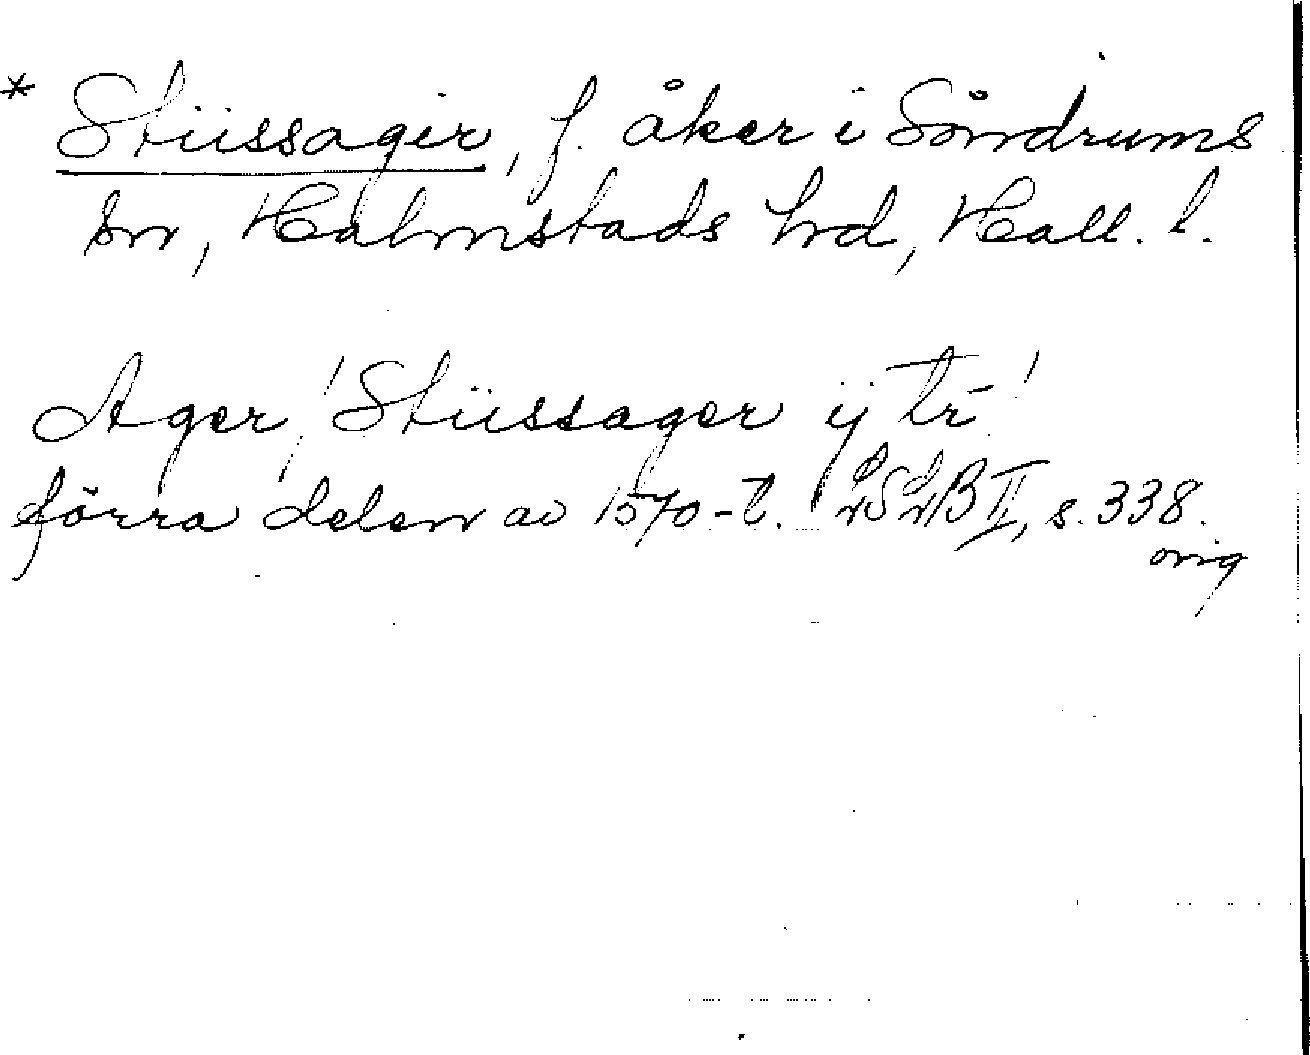 * Stiissagir, f. åker i Söndrums
sn, Halmstads hd, Hall. l.
Ager 'Stiissager ij tr-'
förra delen av 1570-t. LSLB II, s. 338.
orig